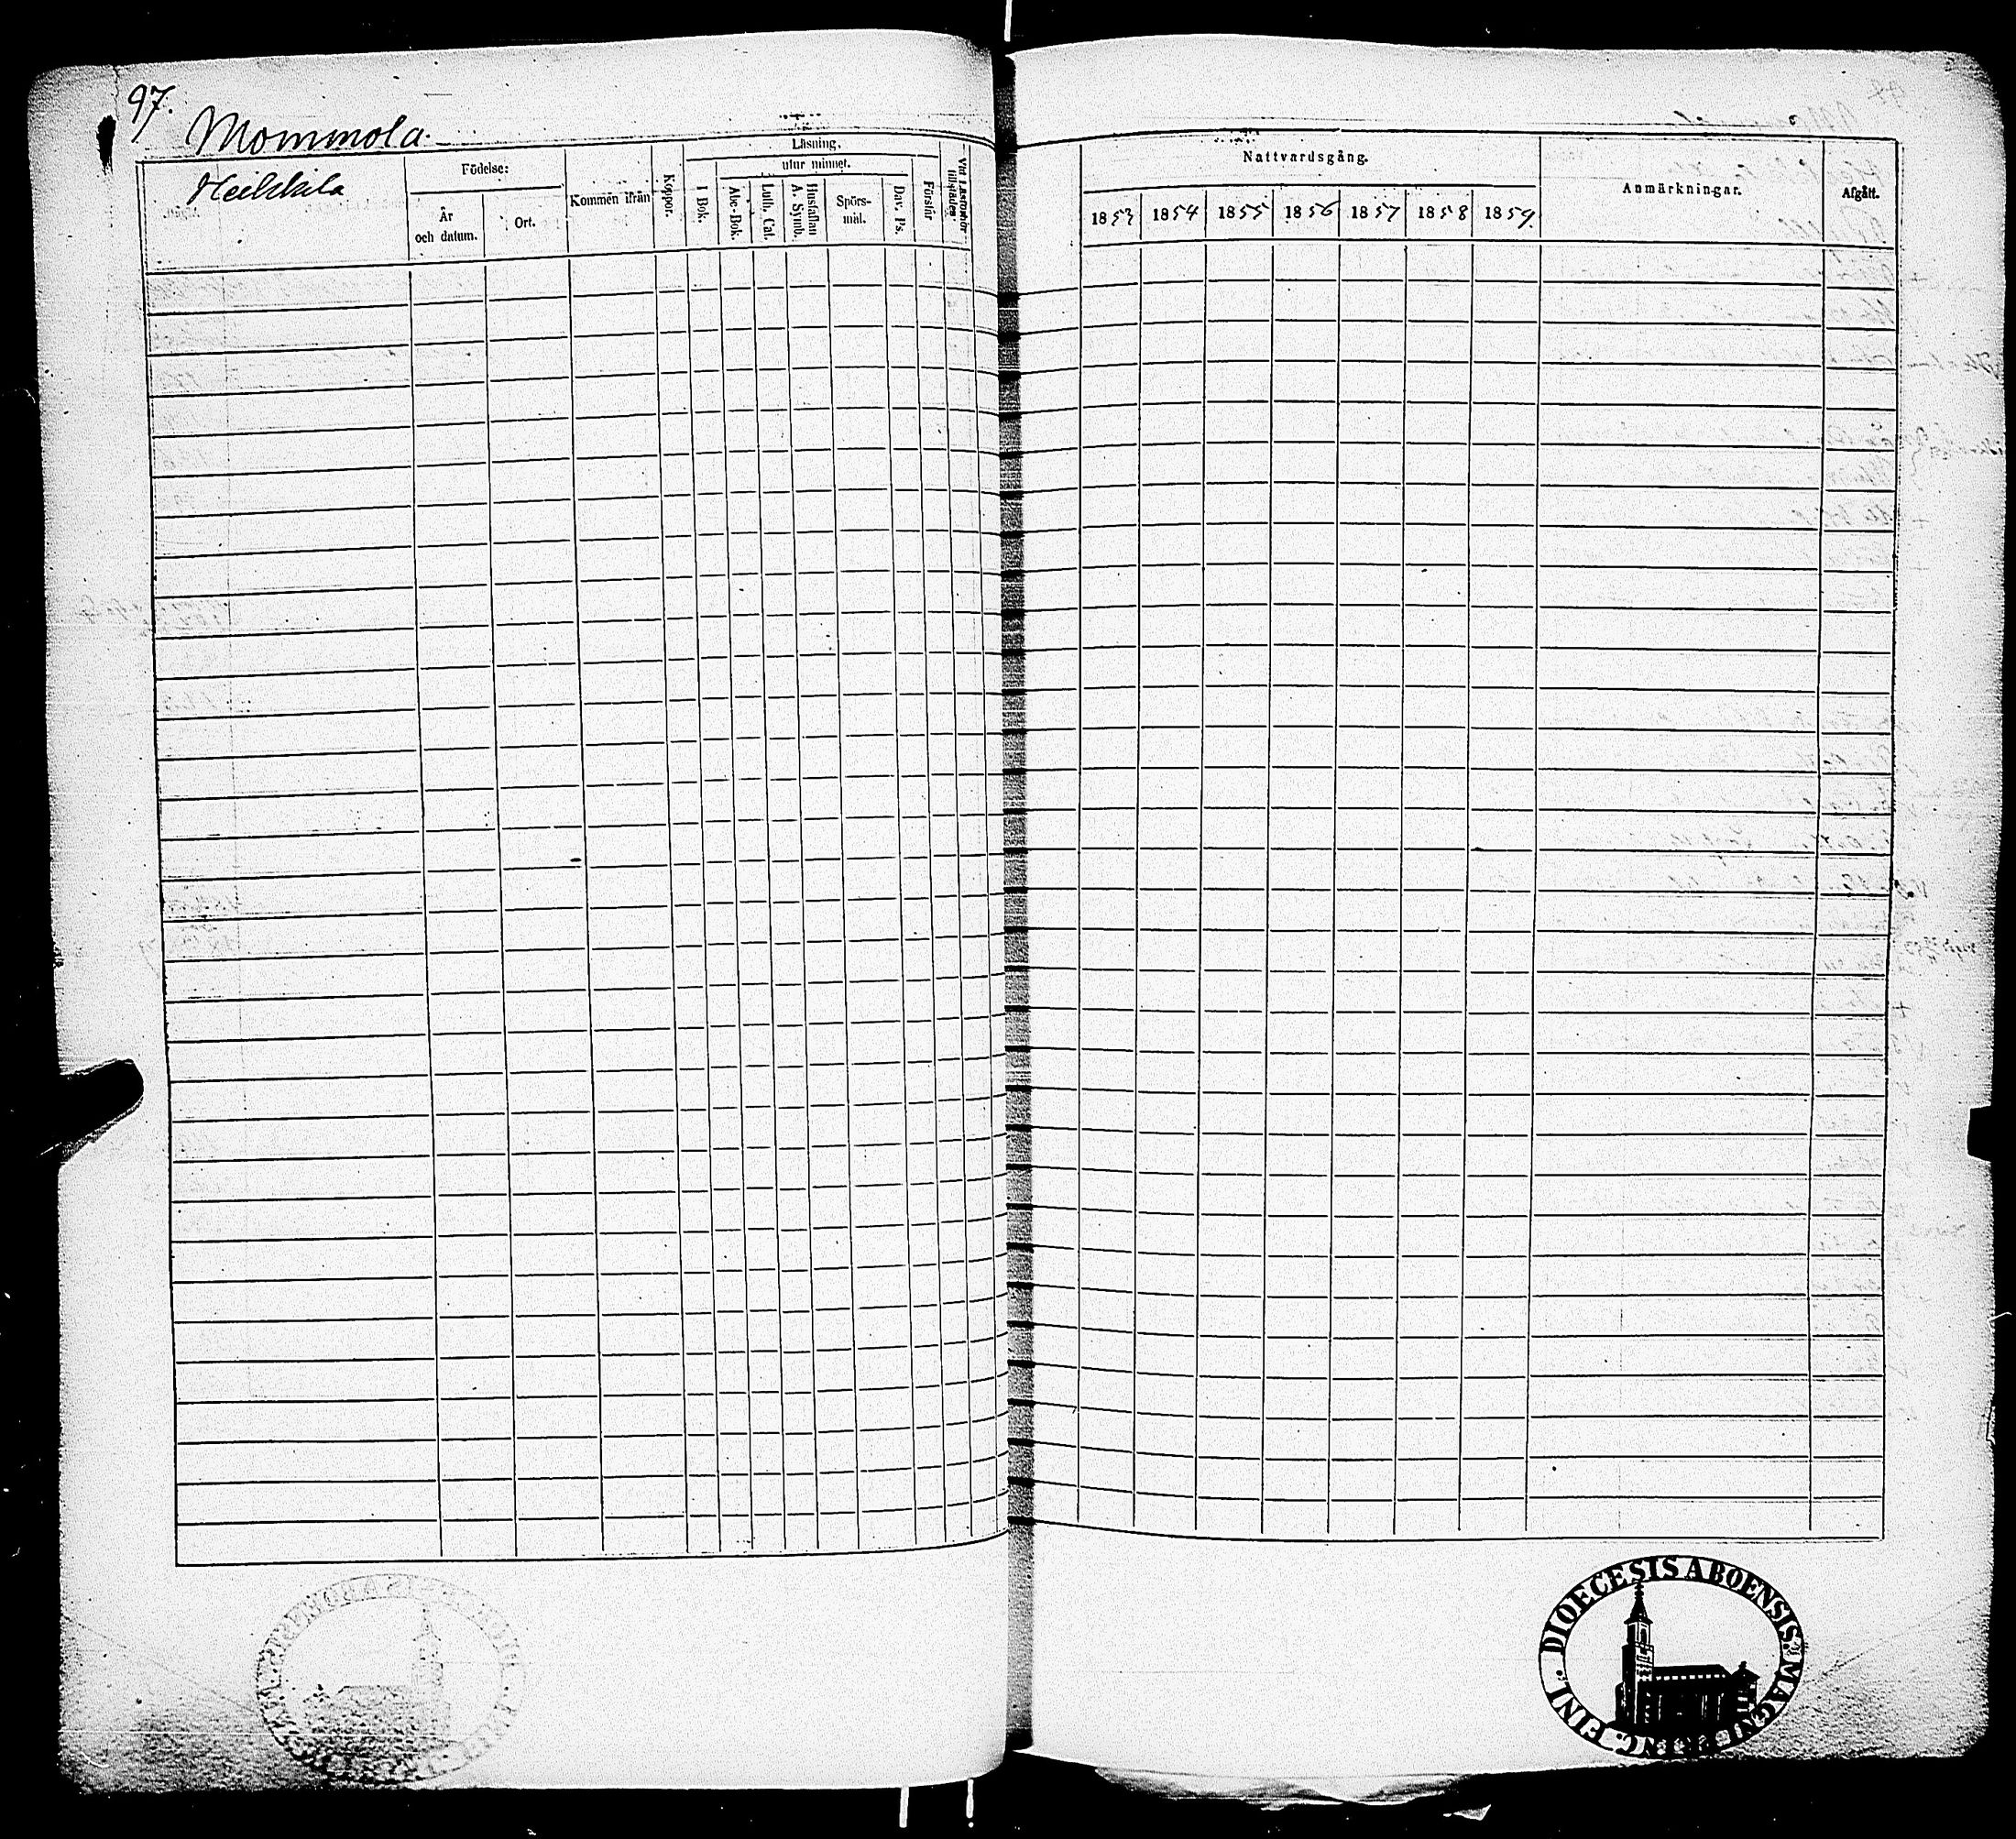 97.
Mommola
Heikkilä
Födelse:
År
och datum.
Ort.
Kommen ifrån
Koppor.
Läsning.
utur minnet.
I Bok.
Abc-Bok.
Luth. Cat.
Hustaflan
A. Symb.
Spörs-
mål.
Dav. Ps.
Förstår
Vid Läsförhör
tillstädes
Nattvardsgång.
1853 1854 1855 1856 1857 1858 1859
Anmärkningar.
Afgått.
DIOECESIS ABOENSIS. MAGNI PRINC. FINL.